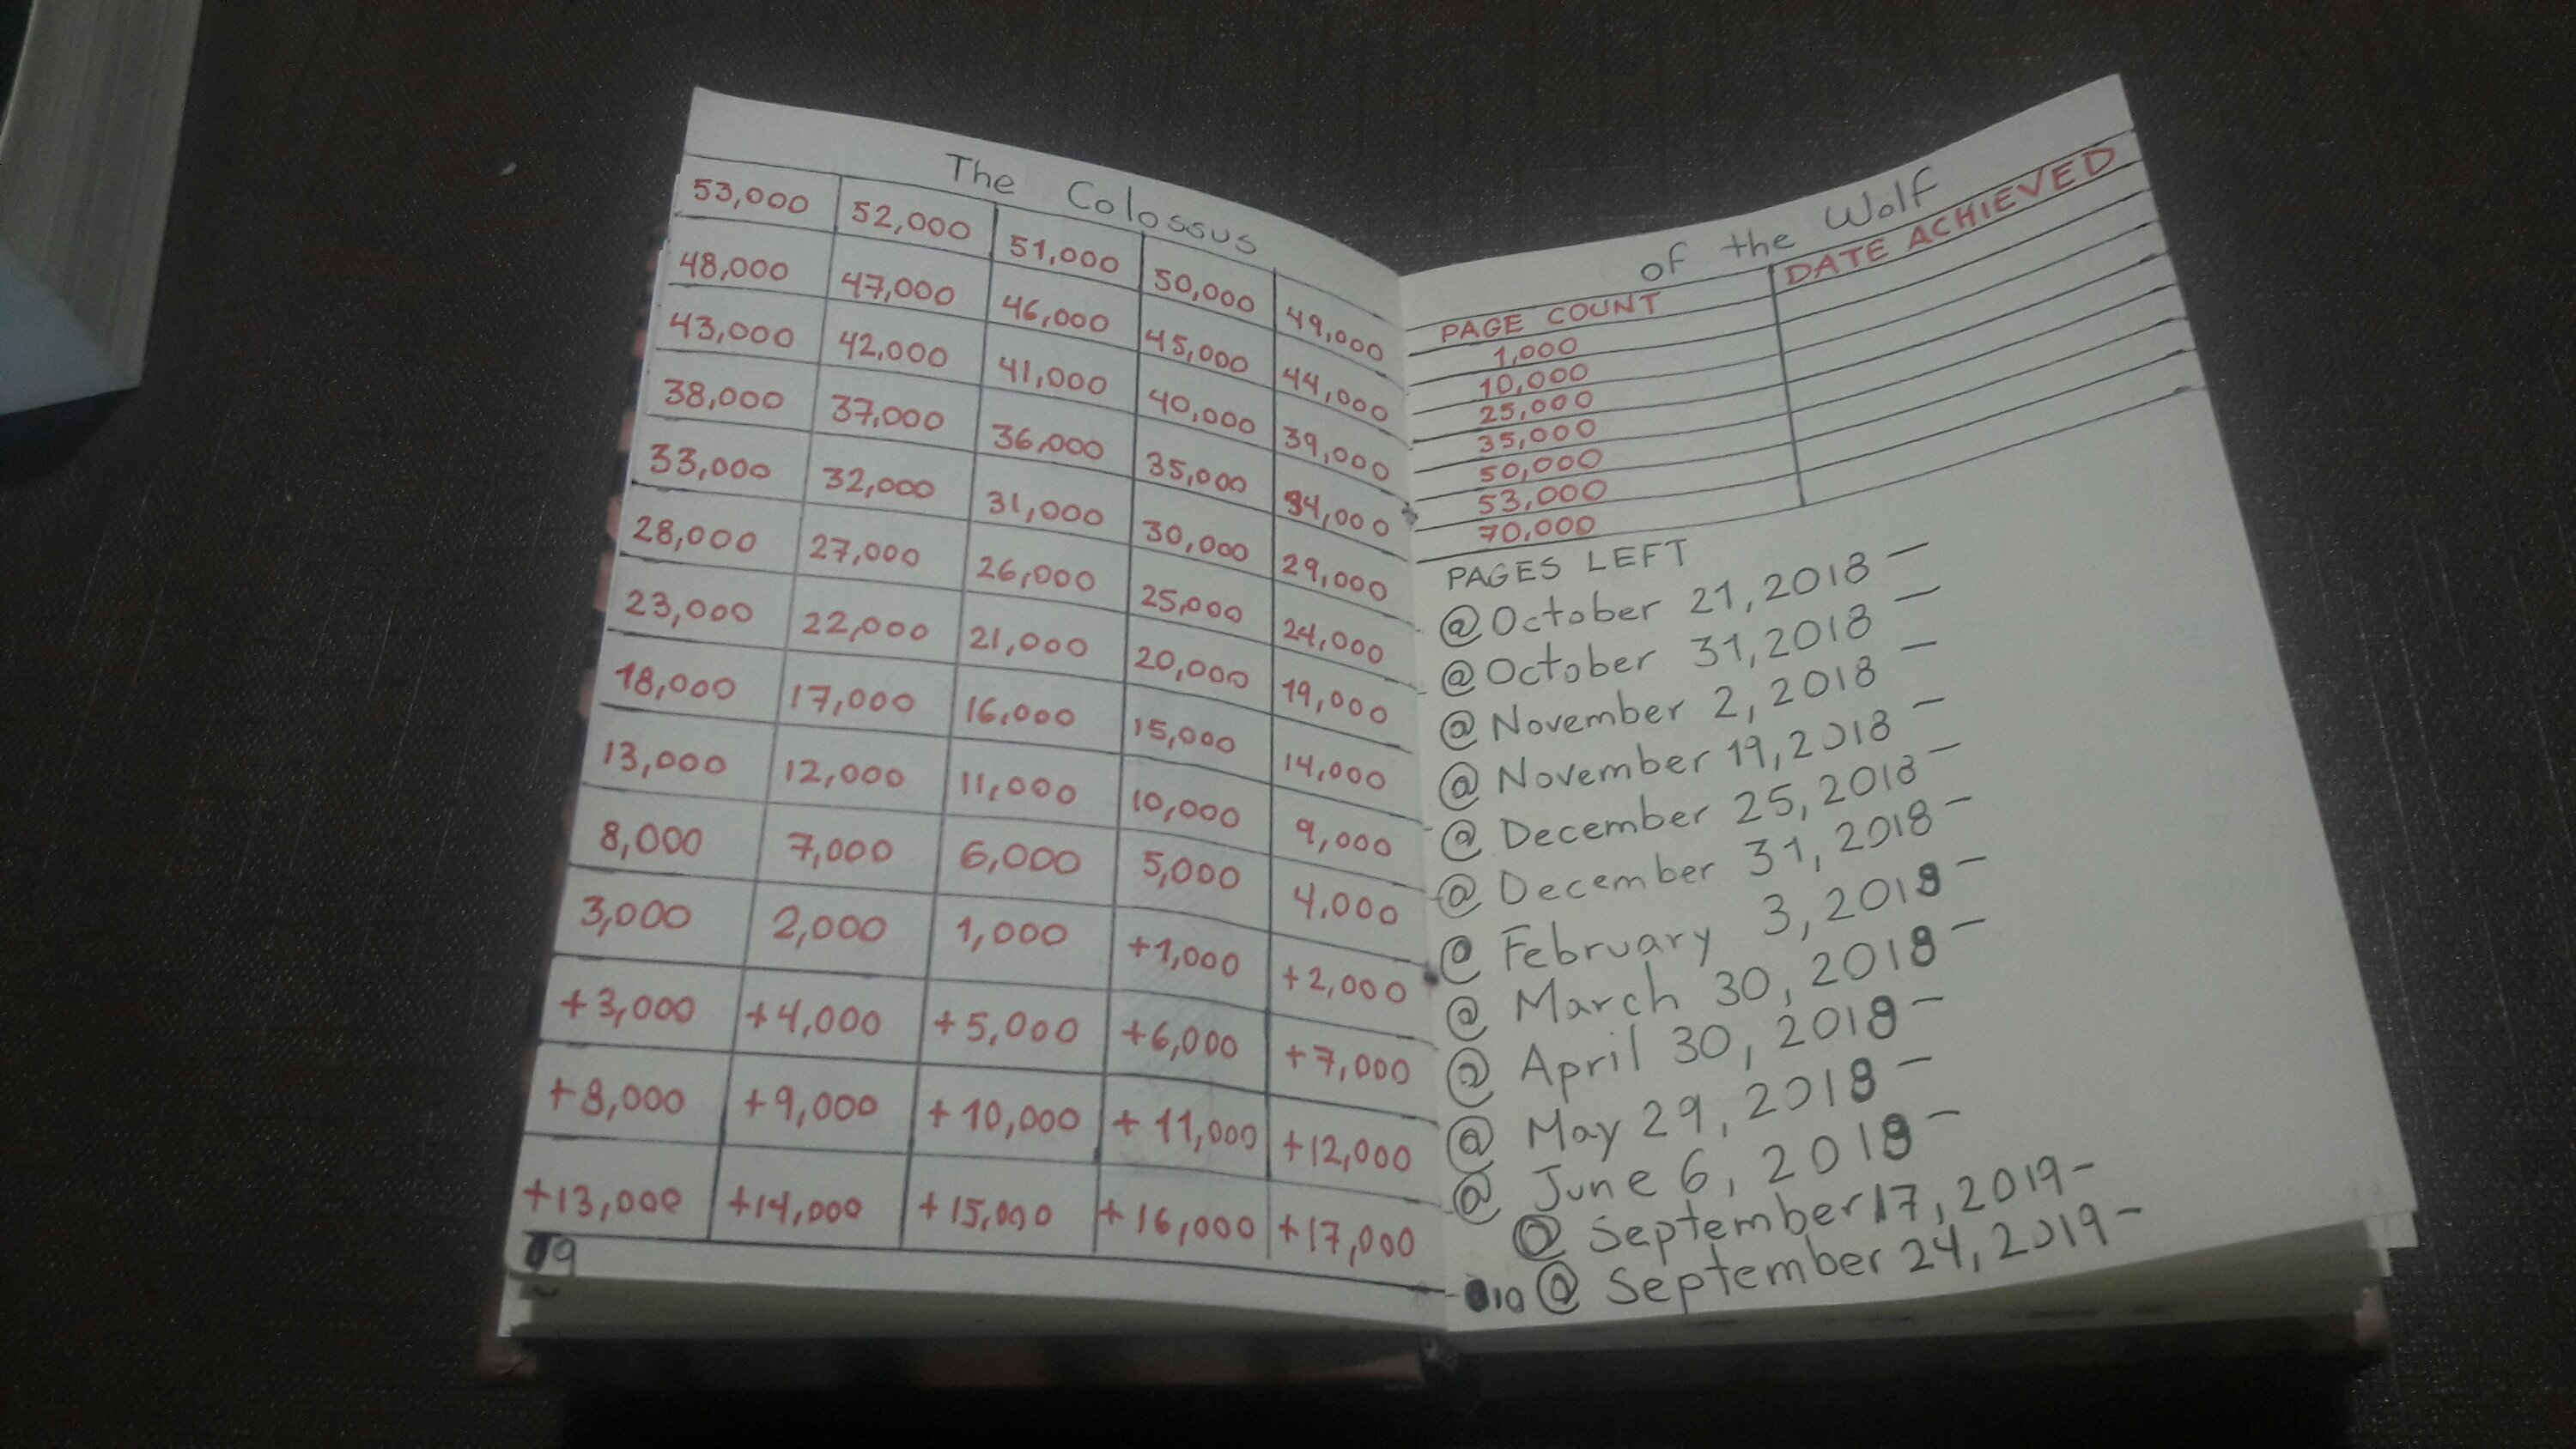 The Colossus
53,000 52,000 51,000 50,000 49,000
48,000 47,000 46,000 45,000 44,000
43,000 42,000 41,000 40,000 39,000
38,000 37,000 36,000 35,000 34,000
33,000 32,000 31,000 30,000 29,000
28,000 27,000 26,000 25,000 24,000
23,000 22,000 21,000 20,000 19,000
18,000 17,000 16,000 15,000 14,000
13,000 12,000 11,000 10,000 9,000
8,000 7,000 6,000 5,000 4,000
3,000 2,000 1,000 +1,000 +2,000
+3,000 +4,000 +5,000 +6,000 +7,000
+8,000 +9,000 +10,000 +11,000 +12,000
+13,000 +14,000 +15,000 +16,000 +17,000
9
of the Wolf
PAGE COUNT DATE ACHIEVED
1,000
10,000
25,000
35,000
50,000
53,000
70,000
PAGES LEFT
@ October 21, 2018 –
@ October 31, 2018 –
@ November 2, 2018 –
@ November 19, 2018 –
@ December 25, 2018 –
@ December 31, 2018 –
@ February 3, 2019 –
@ March 30, 2019 –
@ April 30, 2019 –
@ May 29, 2019 –
@ June 6, 2019 –
@ September 17, 2019 –
10 @ September 24, 2019 –